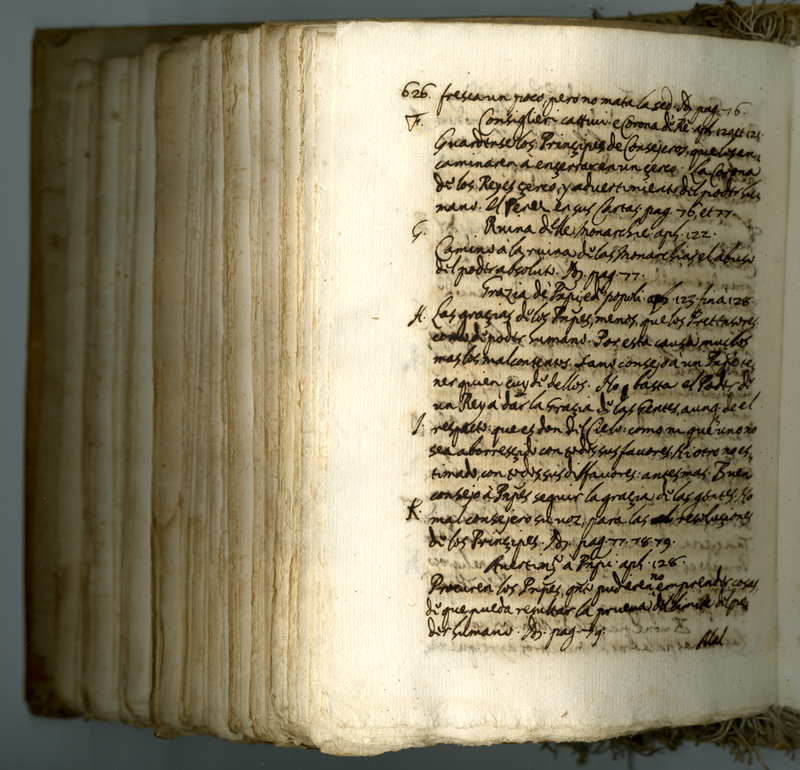 626. fresca un poco, pero no mata la sed. pag. 76.
F. Consiglieri cattivi e Corona di Re. aph. 120 et 121.
Guardense los Principes de Consejeros, que los en,
caminaren a encerrar en un çerco. La Corona
de los Reyes çerco, y advertimiento del poder hu
mano. El Perez en sus Cartas. pag. 76. et 77.
G. Ruina delle Monarchie. aph. 122.
Camino à la ruina de las Monarchias el abuso
del poder absoluto. pag. 77.
Grazia de Prñpi, e de popoli. aph. 123 fin à 128.
H. Las graçias de los Prñpes, menos, que los Pretensores
como de poder humano. Por esta causa muchos
mas los malcontentos. Sano consejo à un Prñpe te,
ner quien cuyde dellos. No basta el Poder de
un Rey à dar la Graçia de las Gentes, aunq. de el
I. respecto: que es don del Cielo: como ni que uno no
sea aborresçido con todos sus favores, Ni otro no es,
timado, con todos sus disfavores: antes mas. Buen
consejo à Prñpes seguir la graçia de las gentes. No
K. mal consejero su voz, para las resoluçiones
de los Prinçipes. pag. 77. 78. 79.
Avertimti à Prñpi. aph. 128.
Procuren los Prñpes, qñto pudieren no emprender cosas,
de que pueda resultar la prueva del limite del po,
der humano. pag. 79.